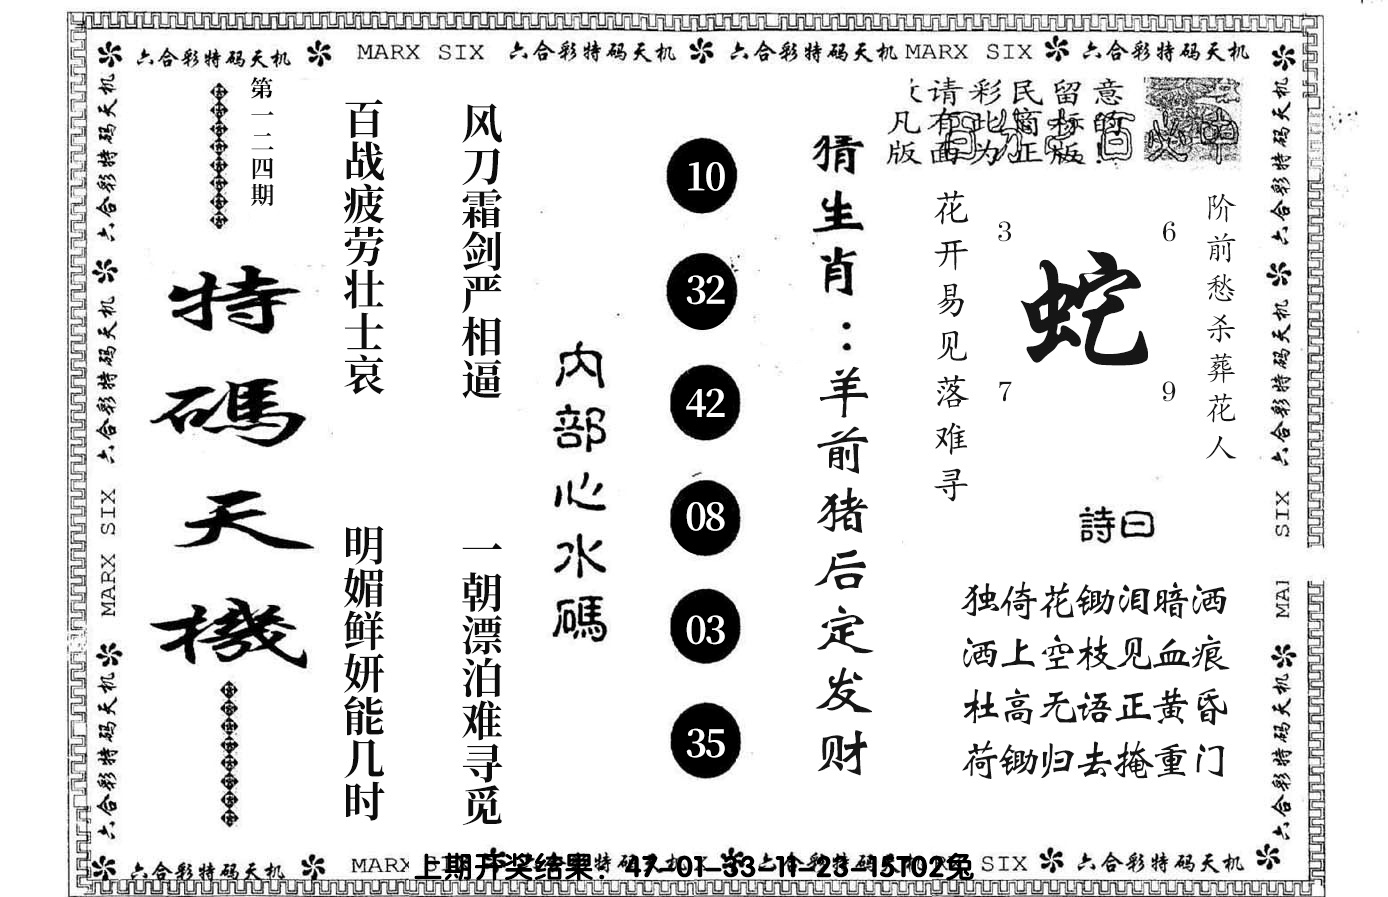 六合彩特码天机 MARX SIX 六合彩特码天机 六合彩特码天机 MARX SIX 六合彩特码天机
六合彩特码天机
六合彩特码天机
MARX SIX
六合彩特码天机
第一二四期
特碼天機
百战疲劳壮士哀
明媚鲜妍能几时
风刀霜剑严相逼
一朝漂泊难寻觅
内部心水碼
10
32
42
08
03
35
猜生肖：羊前猪后定发财
请彩民留意
凡有此商标的
版面为正版!
花开易见落难寻
3
6
蛇
7
9
阶前愁杀葬花人
詩曰
独倚花锄泪暗洒
洒上空枝见血痕
杜高无语正黄昏
荷锄归去掩重门
六合彩特码天机
六合彩特码天机
SIX
MAI
六合彩特码天机
六合彩特码天机 MARX
SIX 六合彩特码天机
上期开奖结果：47-01-33-11-23-15T02兔